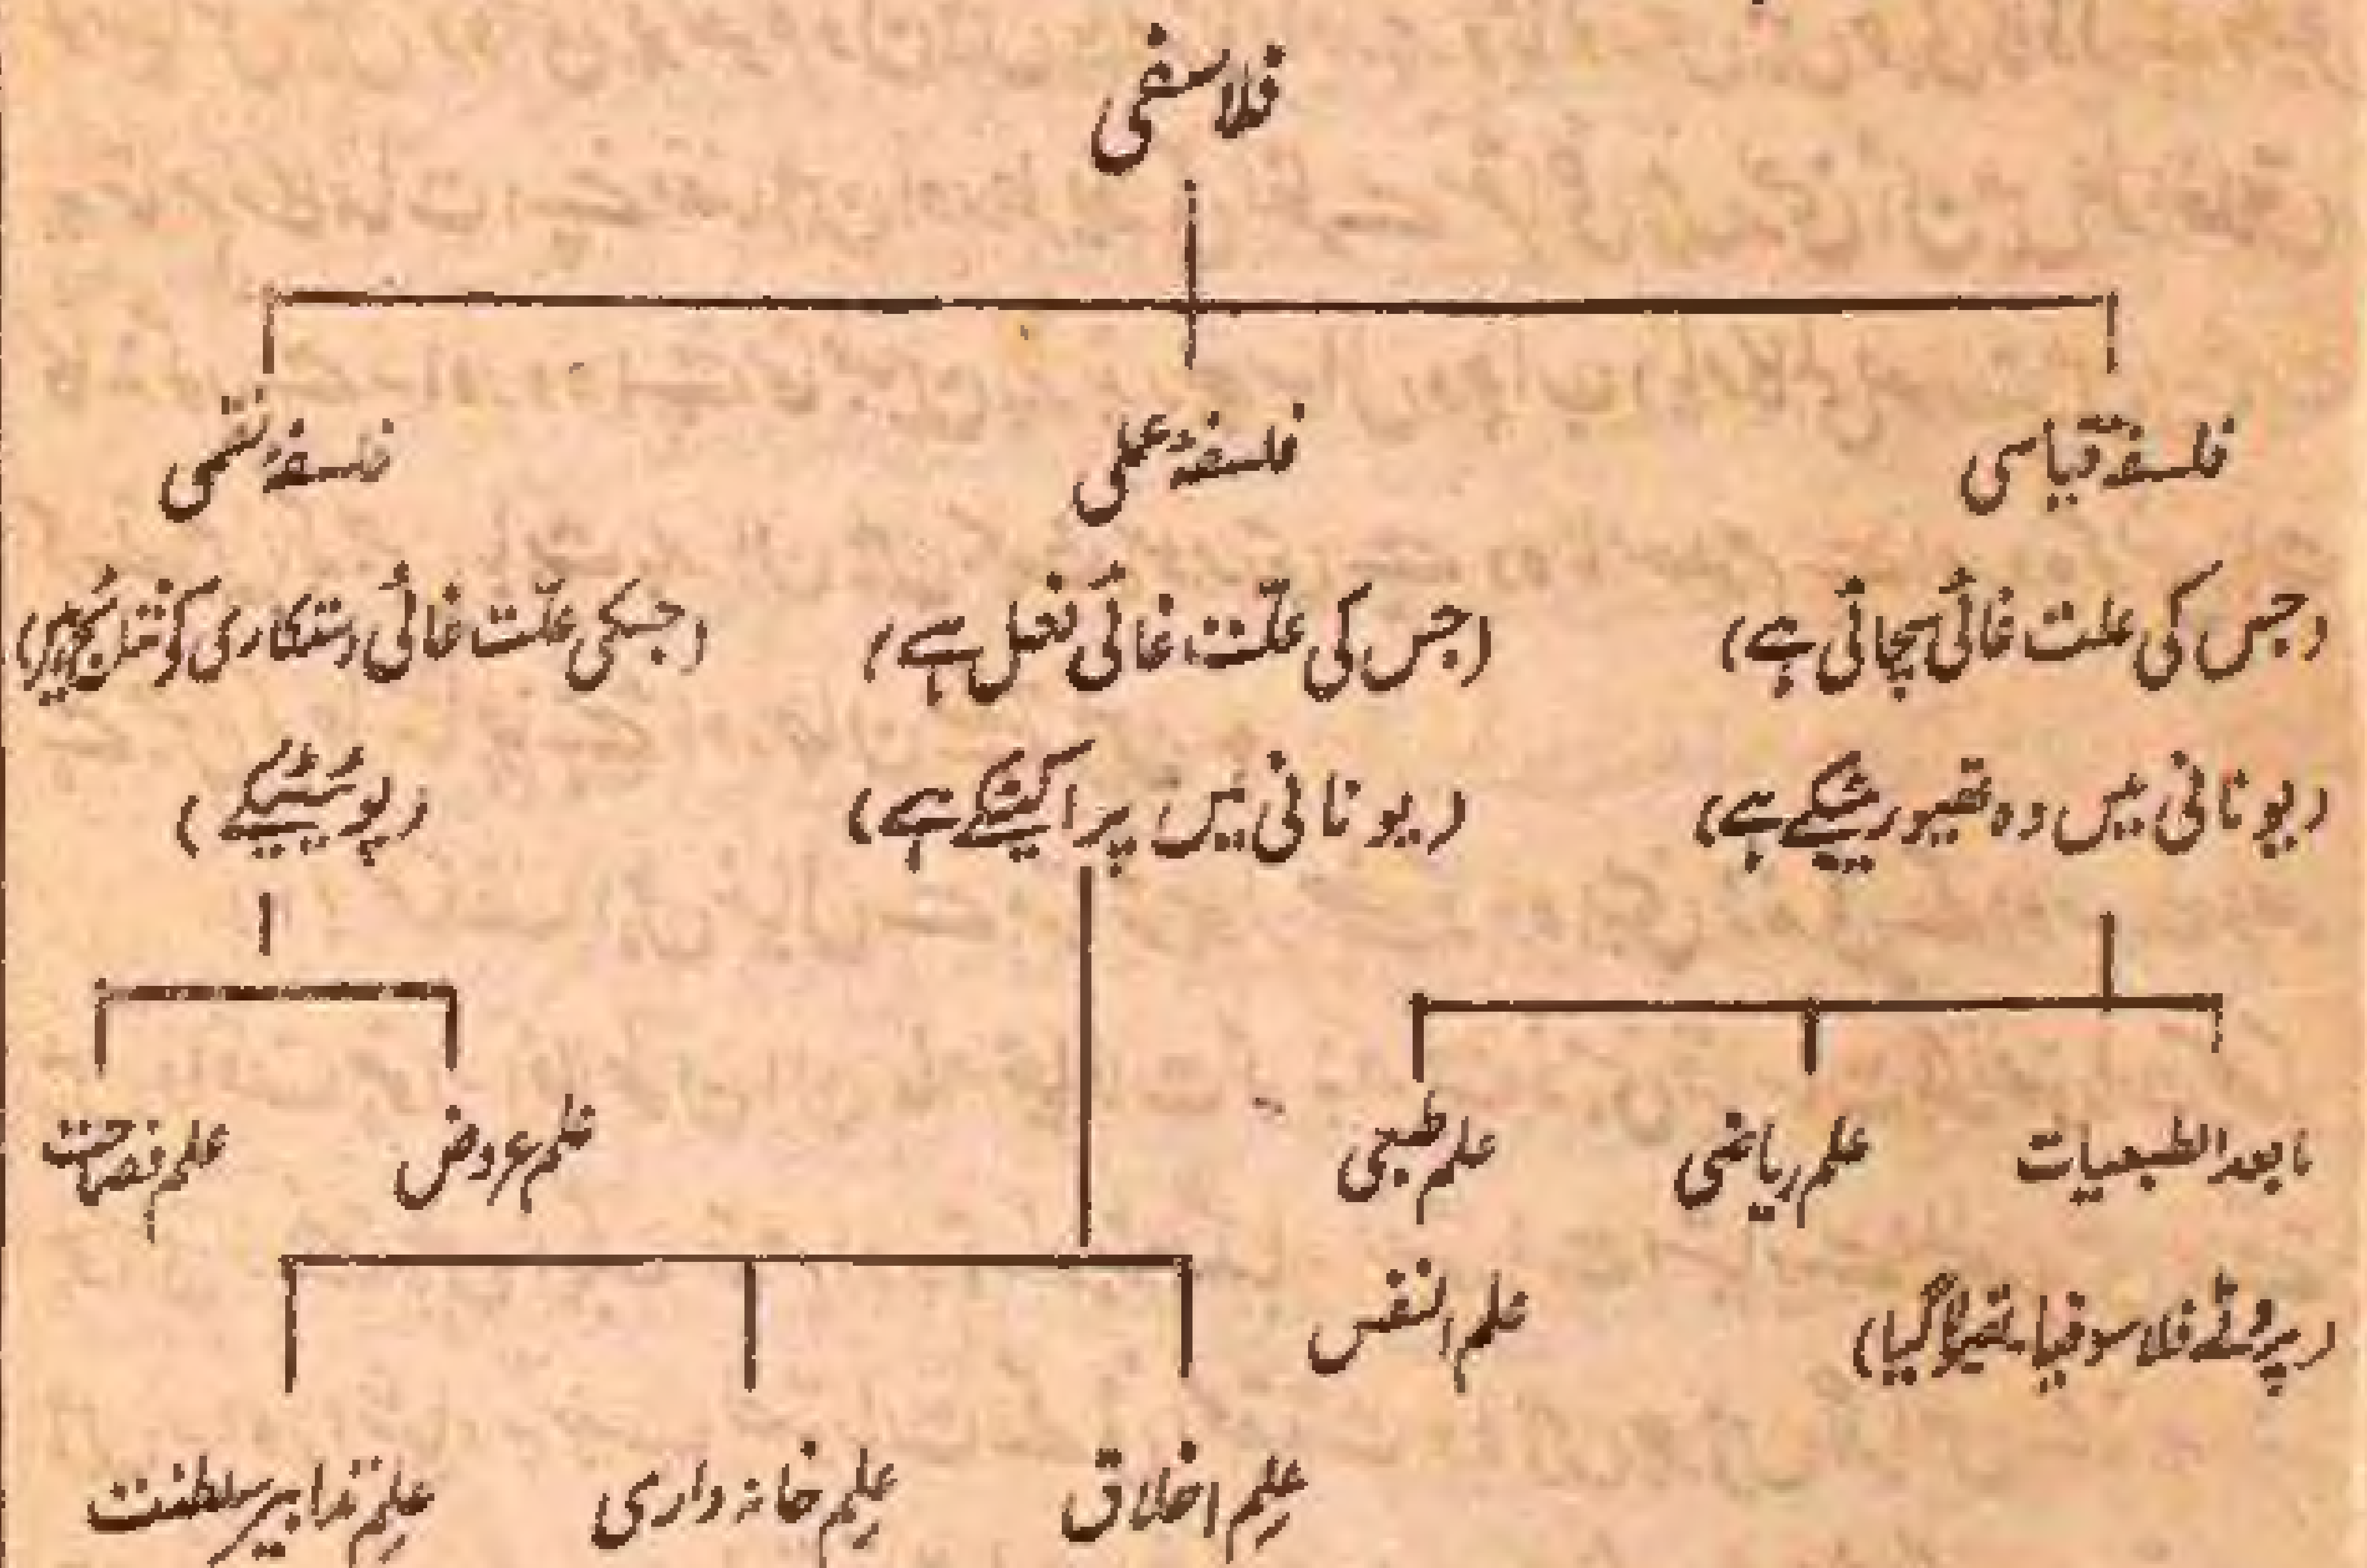 فلاسفی
فلسفۂ قیاسی
(جس کی علت غائی سچائی ہے)
(یونانی میں وہ تھیوریٹیکے ہے)
فلسفۂ عملی
(جس کی علّت غائی فعل ہے)
(یونانی میں پراکٹیکے ہے)
فلسفۂ
(جسکی علّت غائی دستکاری کوشش
(پوئٹیکے)
مابعد الطبعیات
علم ریاضی
علم طبعی
(پروٹے فلاسوفیا۔
علم النفس
علم عروض
علم فصاحت
علِم اخلاق
علِم خانہ داری
علِم تدابیر سلطنت